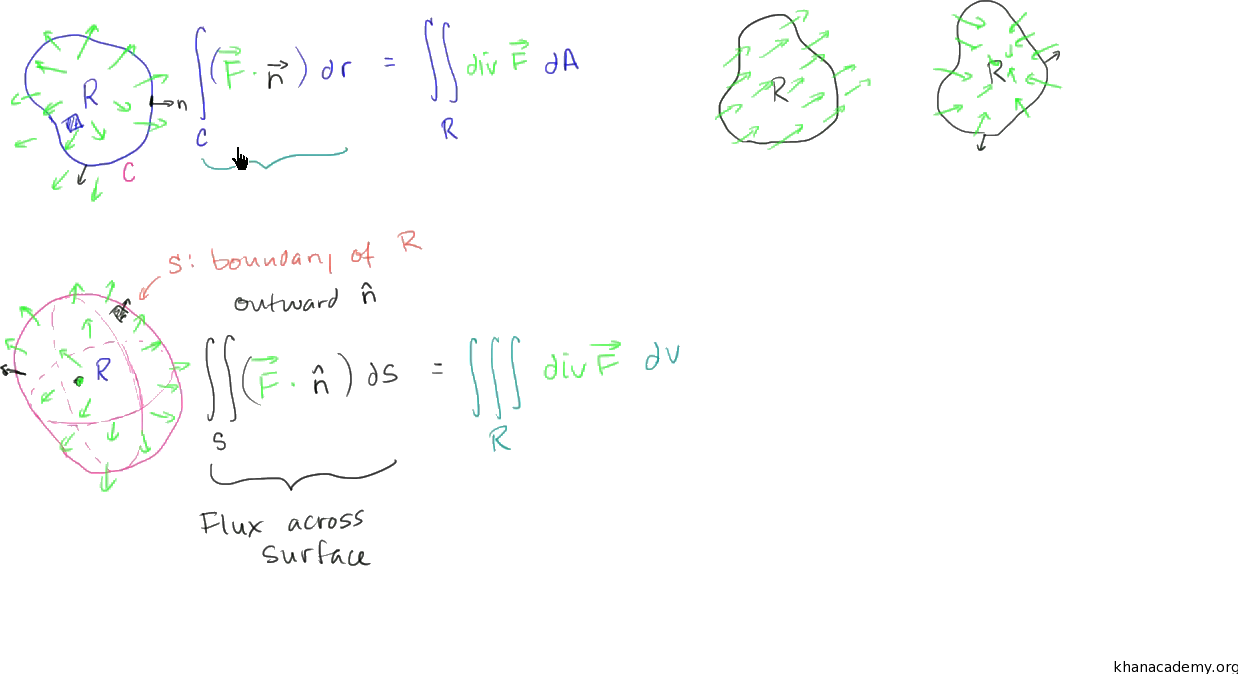 R
n
C
∫ (F⃗ · n⃗) dr = ∬ div F⃗ dA
C
R
R
R
S: boundary of R
outward n̂
R
∬ (F⃗ · n̂) ds = ∭ div F⃗ dv
S
R
Flux across
surface
khanacademy.org